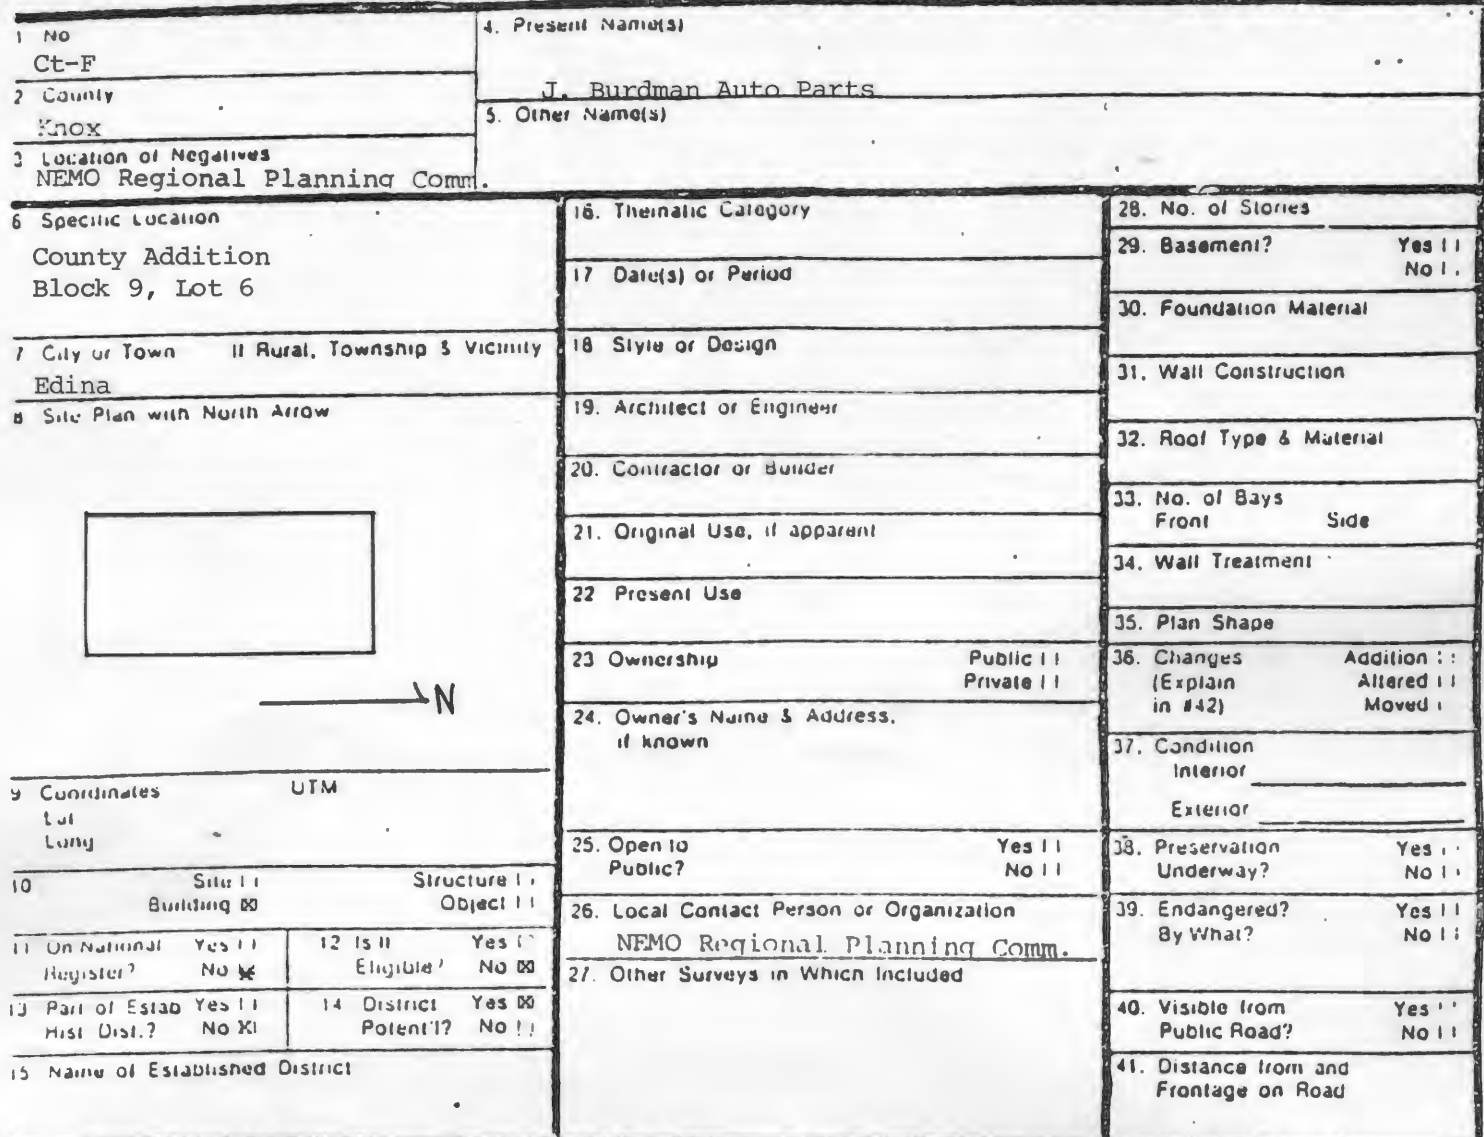 1 No
Ct-F
2 County
Knox
3 Location of Negatives
NEMO Regional Planning Comm.
4. Present Name(s)
J. Burdman Auto Parts
5. Other Name(s)
6 Specific Location
County Addition
Block 9, Lot 6
7 City or Town If Rural, Township & Vicinity
Edina
8 Site Plan with North Arrow
N
9 Coordinates UTM
Lat
Long
10 Site Structure
Building ☒ Object
11 On National Yes
Register? No ☒
12 Is It Yes
Eligible? No ☒
13 Part of Estab Yes
Hist Dist.? No ☒
14 District Yes ☒
Potent'l? No
15 Name of Established District
16. Thematic Category
17 Date(s) or Period
18 Style or Design
19. Architect or Engineer
20. Contractor or Builder
21. Original Use, if apparent
22 Present Use
23 Ownership Public
Private
24. Owner's Name & Address,
if known
25. Open to Yes
Public? No
26. Local Contact Person or Organization
NEMO Regional Planning Comm.
27. Other Surveys in Which Included
28. No. of Stories
29. Basement? Yes
No
30. Foundation Material
31. Wall Construction
32. Roof Type & Material
33. No. of Bays
Front Side
34. Wall Treatment
35. Plan Shape
36. Changes Addition
(Explain Altered
in #42) Moved
37. Condition
Interior
Exterior
38. Preservation Yes
Underway? No
39. Endangered? Yes
By What? No
40. Visible from Yes
Public Road? No
41. Distance from and
Frontage on Road